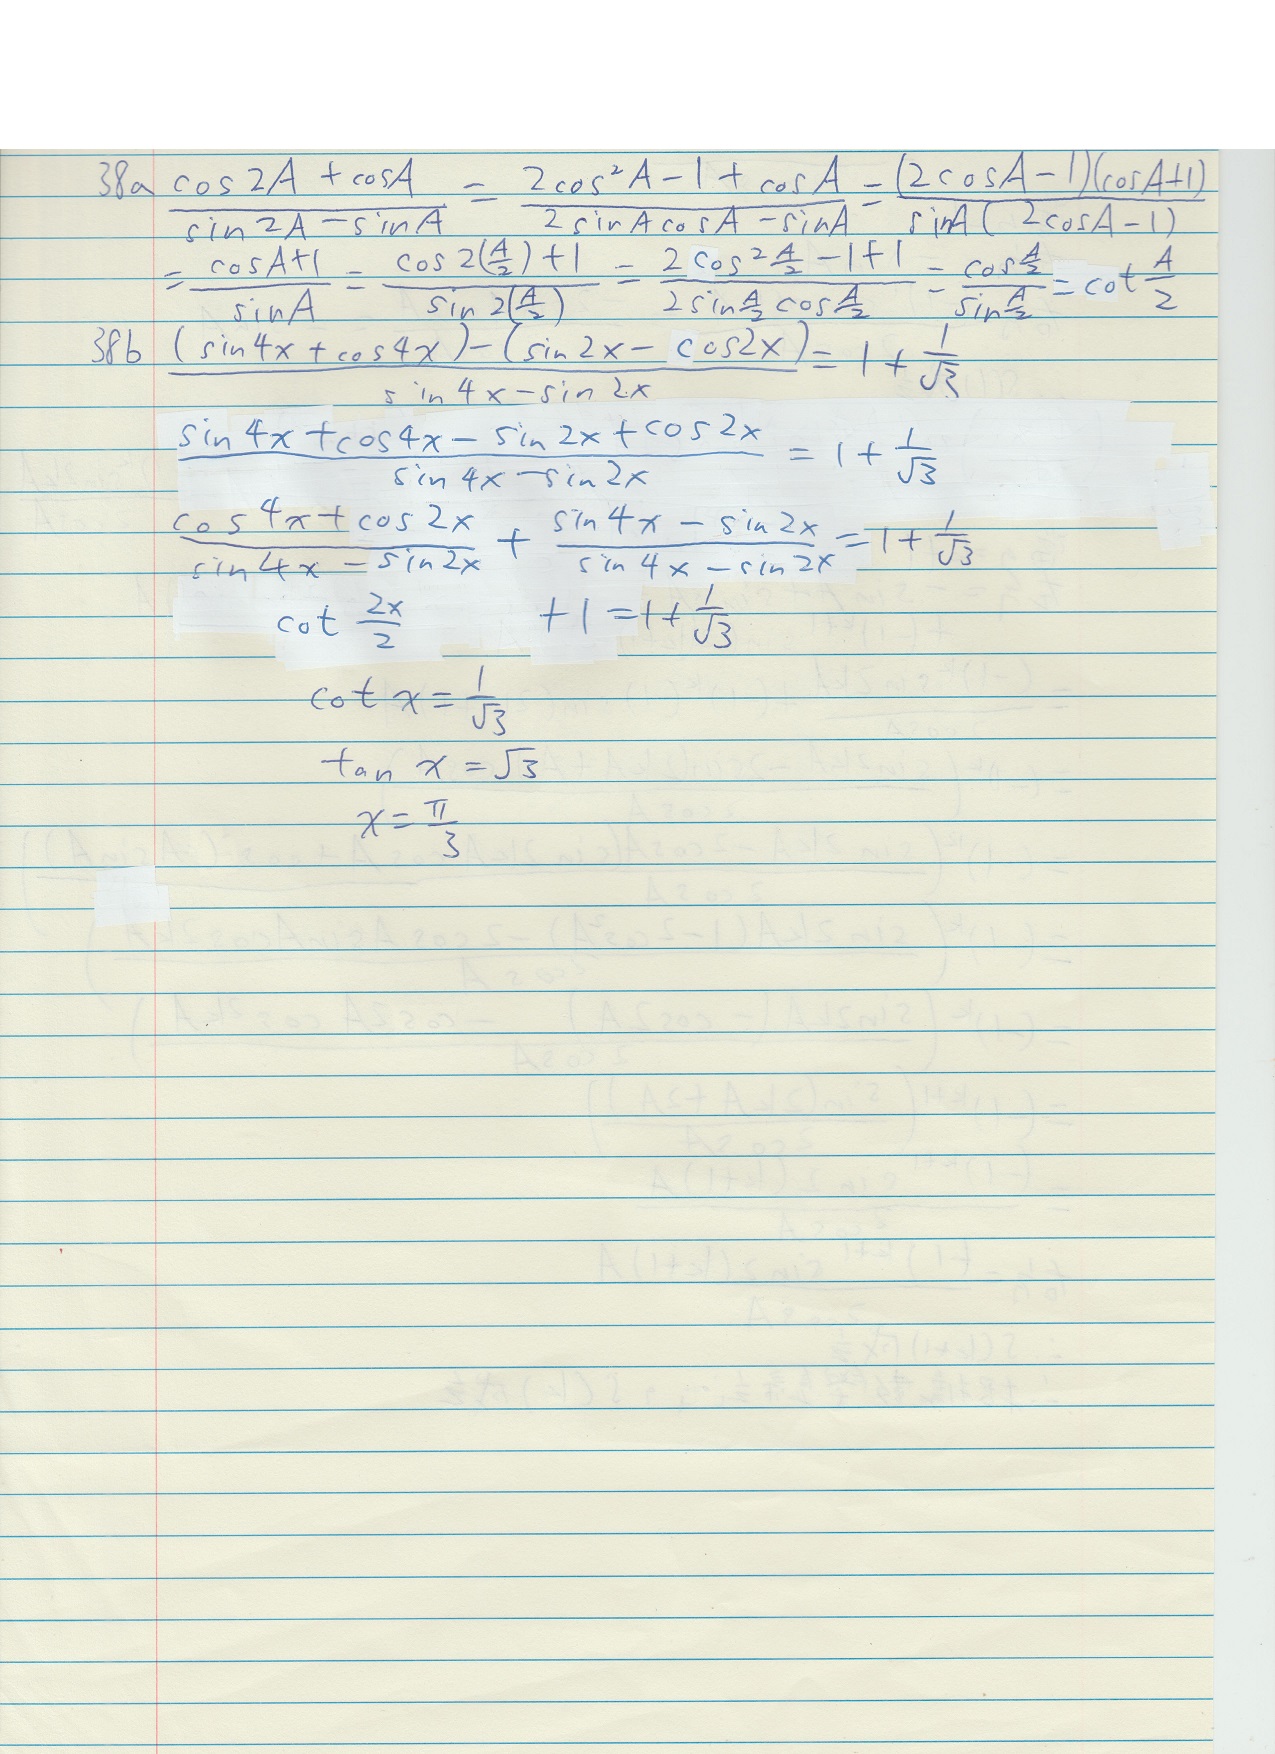 38a (cos2A + cosA)/(sin2A - sinA) = (2cos²A - 1 + cosA)/(2sinAcosA - sinA) = (2cosA - 1)(cosA+1)/(sinA(2cosA - 1))
= (cosA+1)/(sinA) = (cos2(A/2)+1)/(sin2(A/2)) = (2cos²A/2 - 1+1)/(2sinA/2 cosA/2) = (cosA/2)/(sinA/2) = cot A/2
38b ((sin4x + cos4x) - (sin2x - cos2x))/(sin4x - sin2x) = 1 + 1/√3
(sin4x + cos4x - sin2x + cos2x)/(sin4x - sin2x) = 1 + 1/√3
(cos4x + cos2x)/(sin4x - sin2x) + (sin4x - sin2x)/(sin4x - sin2x) = 1 + 1/√3
cot 2x/2 + 1 = 1 + 1/√3
cot x = 1/√3
tan x = √3
x = π/3